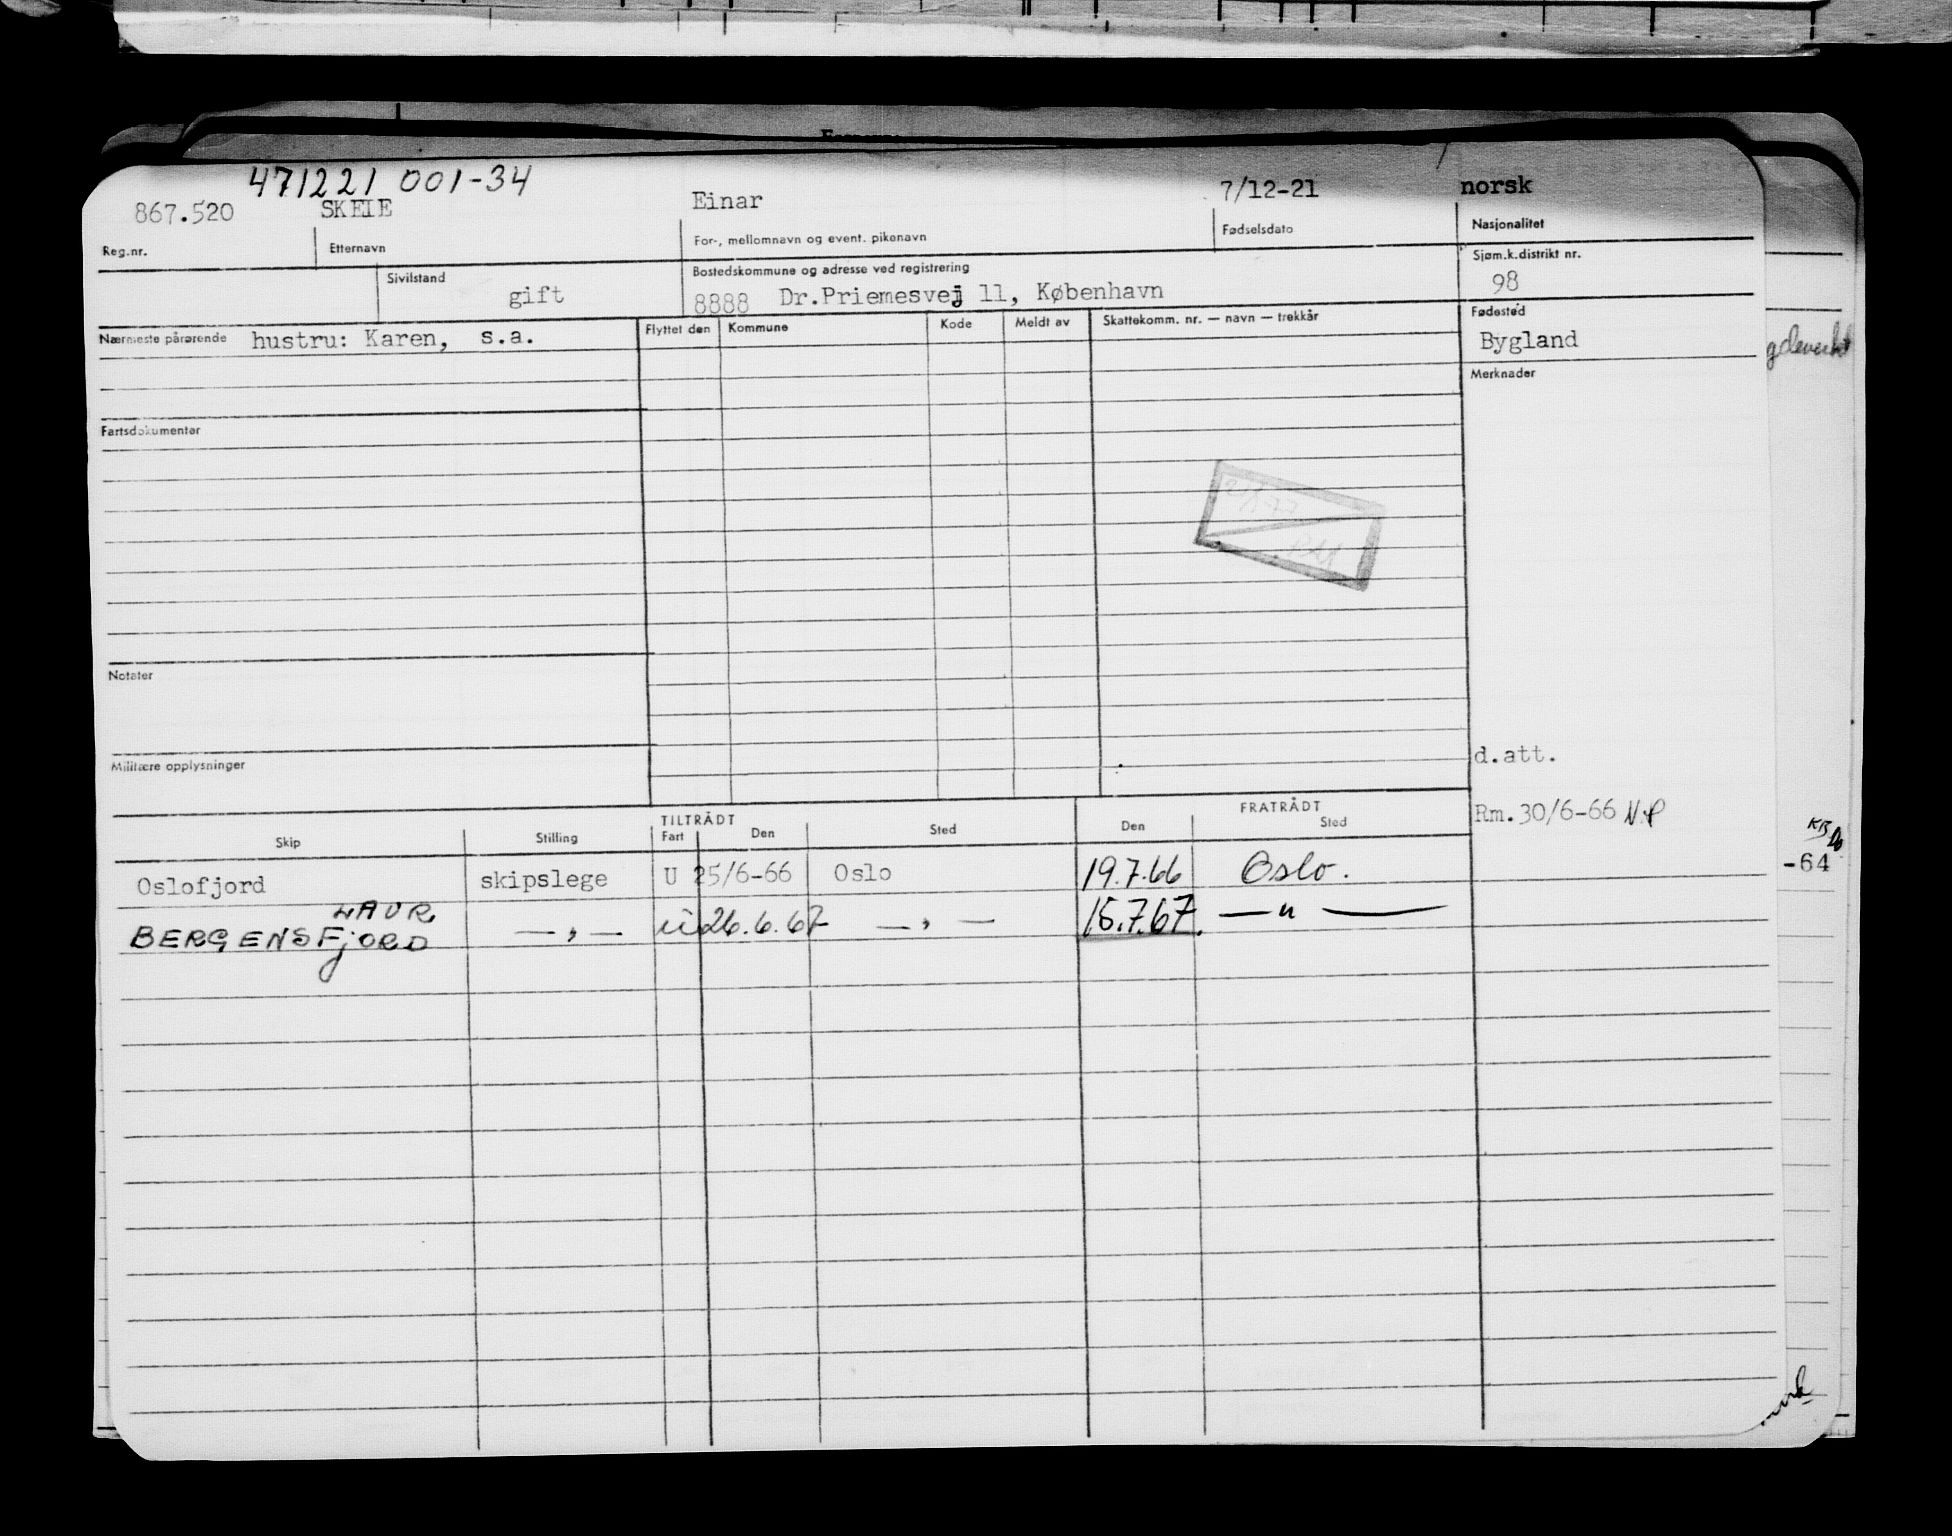 471221 001-34
867.520 SKEIE Einar 7/12-21 norsk
Reg.nr. Etternavn For-, mellomnavn og event. pikenavn Fødselsdato Nasjonalitet
Sivilstand gift Bostedskommune og adresse ved registrering Sjøm.k.distrikt nr.
8888 Dr.Priemesvej 11, København 98
Nærmeste pårørende hustru: Karen, s.a. Flyttet den Kommune Kode Meldt av Skattekomm. nr. — navn — trekkår Fødested
Bygland
Merknader
Fartsdokumenter
Notater
Militære opplysninger
d.att.
Rm.30/6-66 N.P
TILTRÅDT FRATRÅDT
Skip Stilling Fart Den Sted Den Sted
Oslofjord skipslege U 25/6-66 Oslo 19.7.66 Oslo.
LAUR
BERGENSFJORD — " — U 26.6.67 — " — 15.7.67. — " —
-64